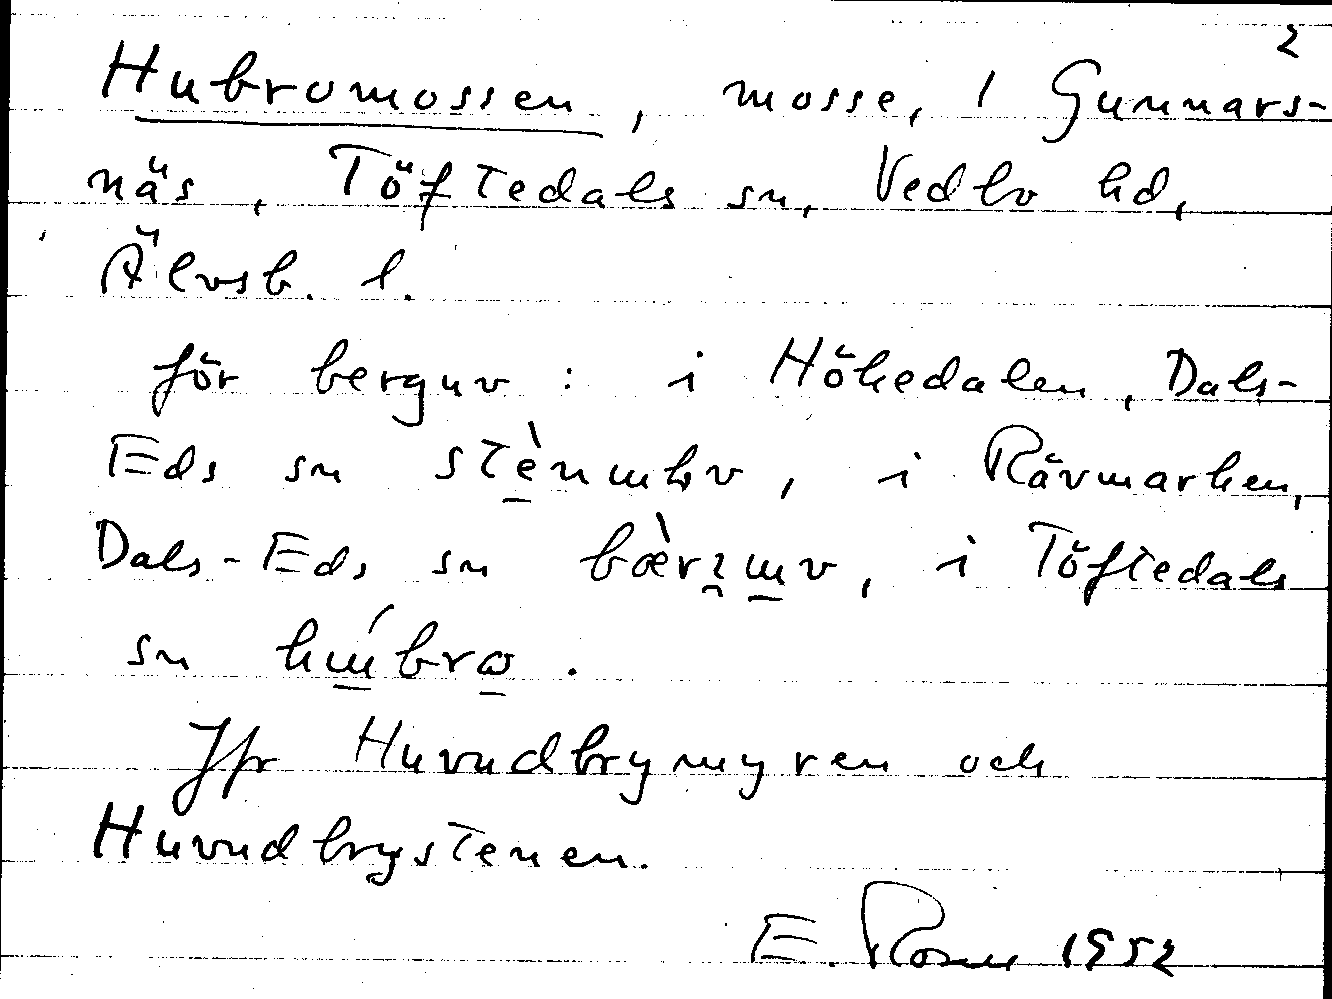 2
Hubromossen, mosse, 1 Gunnars-
näs, Töftedals sn, Vedbo hd,
Älvsb. l.
för berguv: i Hökedalen, Dals-
Eds sn stènɯbv, i Rävmarken,
Dals-Eds sn bæ̀rɿɯv, i Töftedals
sn hɯ́brꞷ.
Jfr Huvudbrymyren och
Huvudbrystenen.
E. Rosen 1952